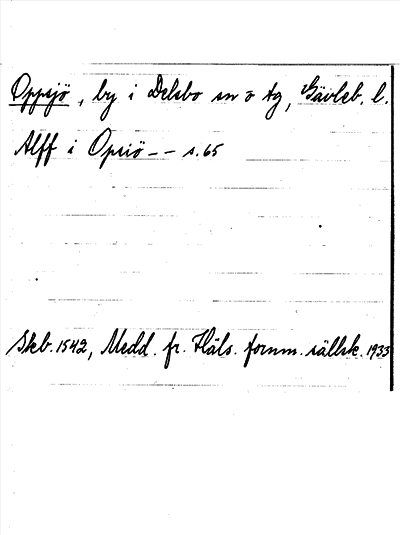 Oppsjö, by i Delsbo sn o tg, Gävleb. l.
Alff i Opsiö – – s. 65
Skb. 1542, Medd. fr. Häls. fornm. sällsk. 1933